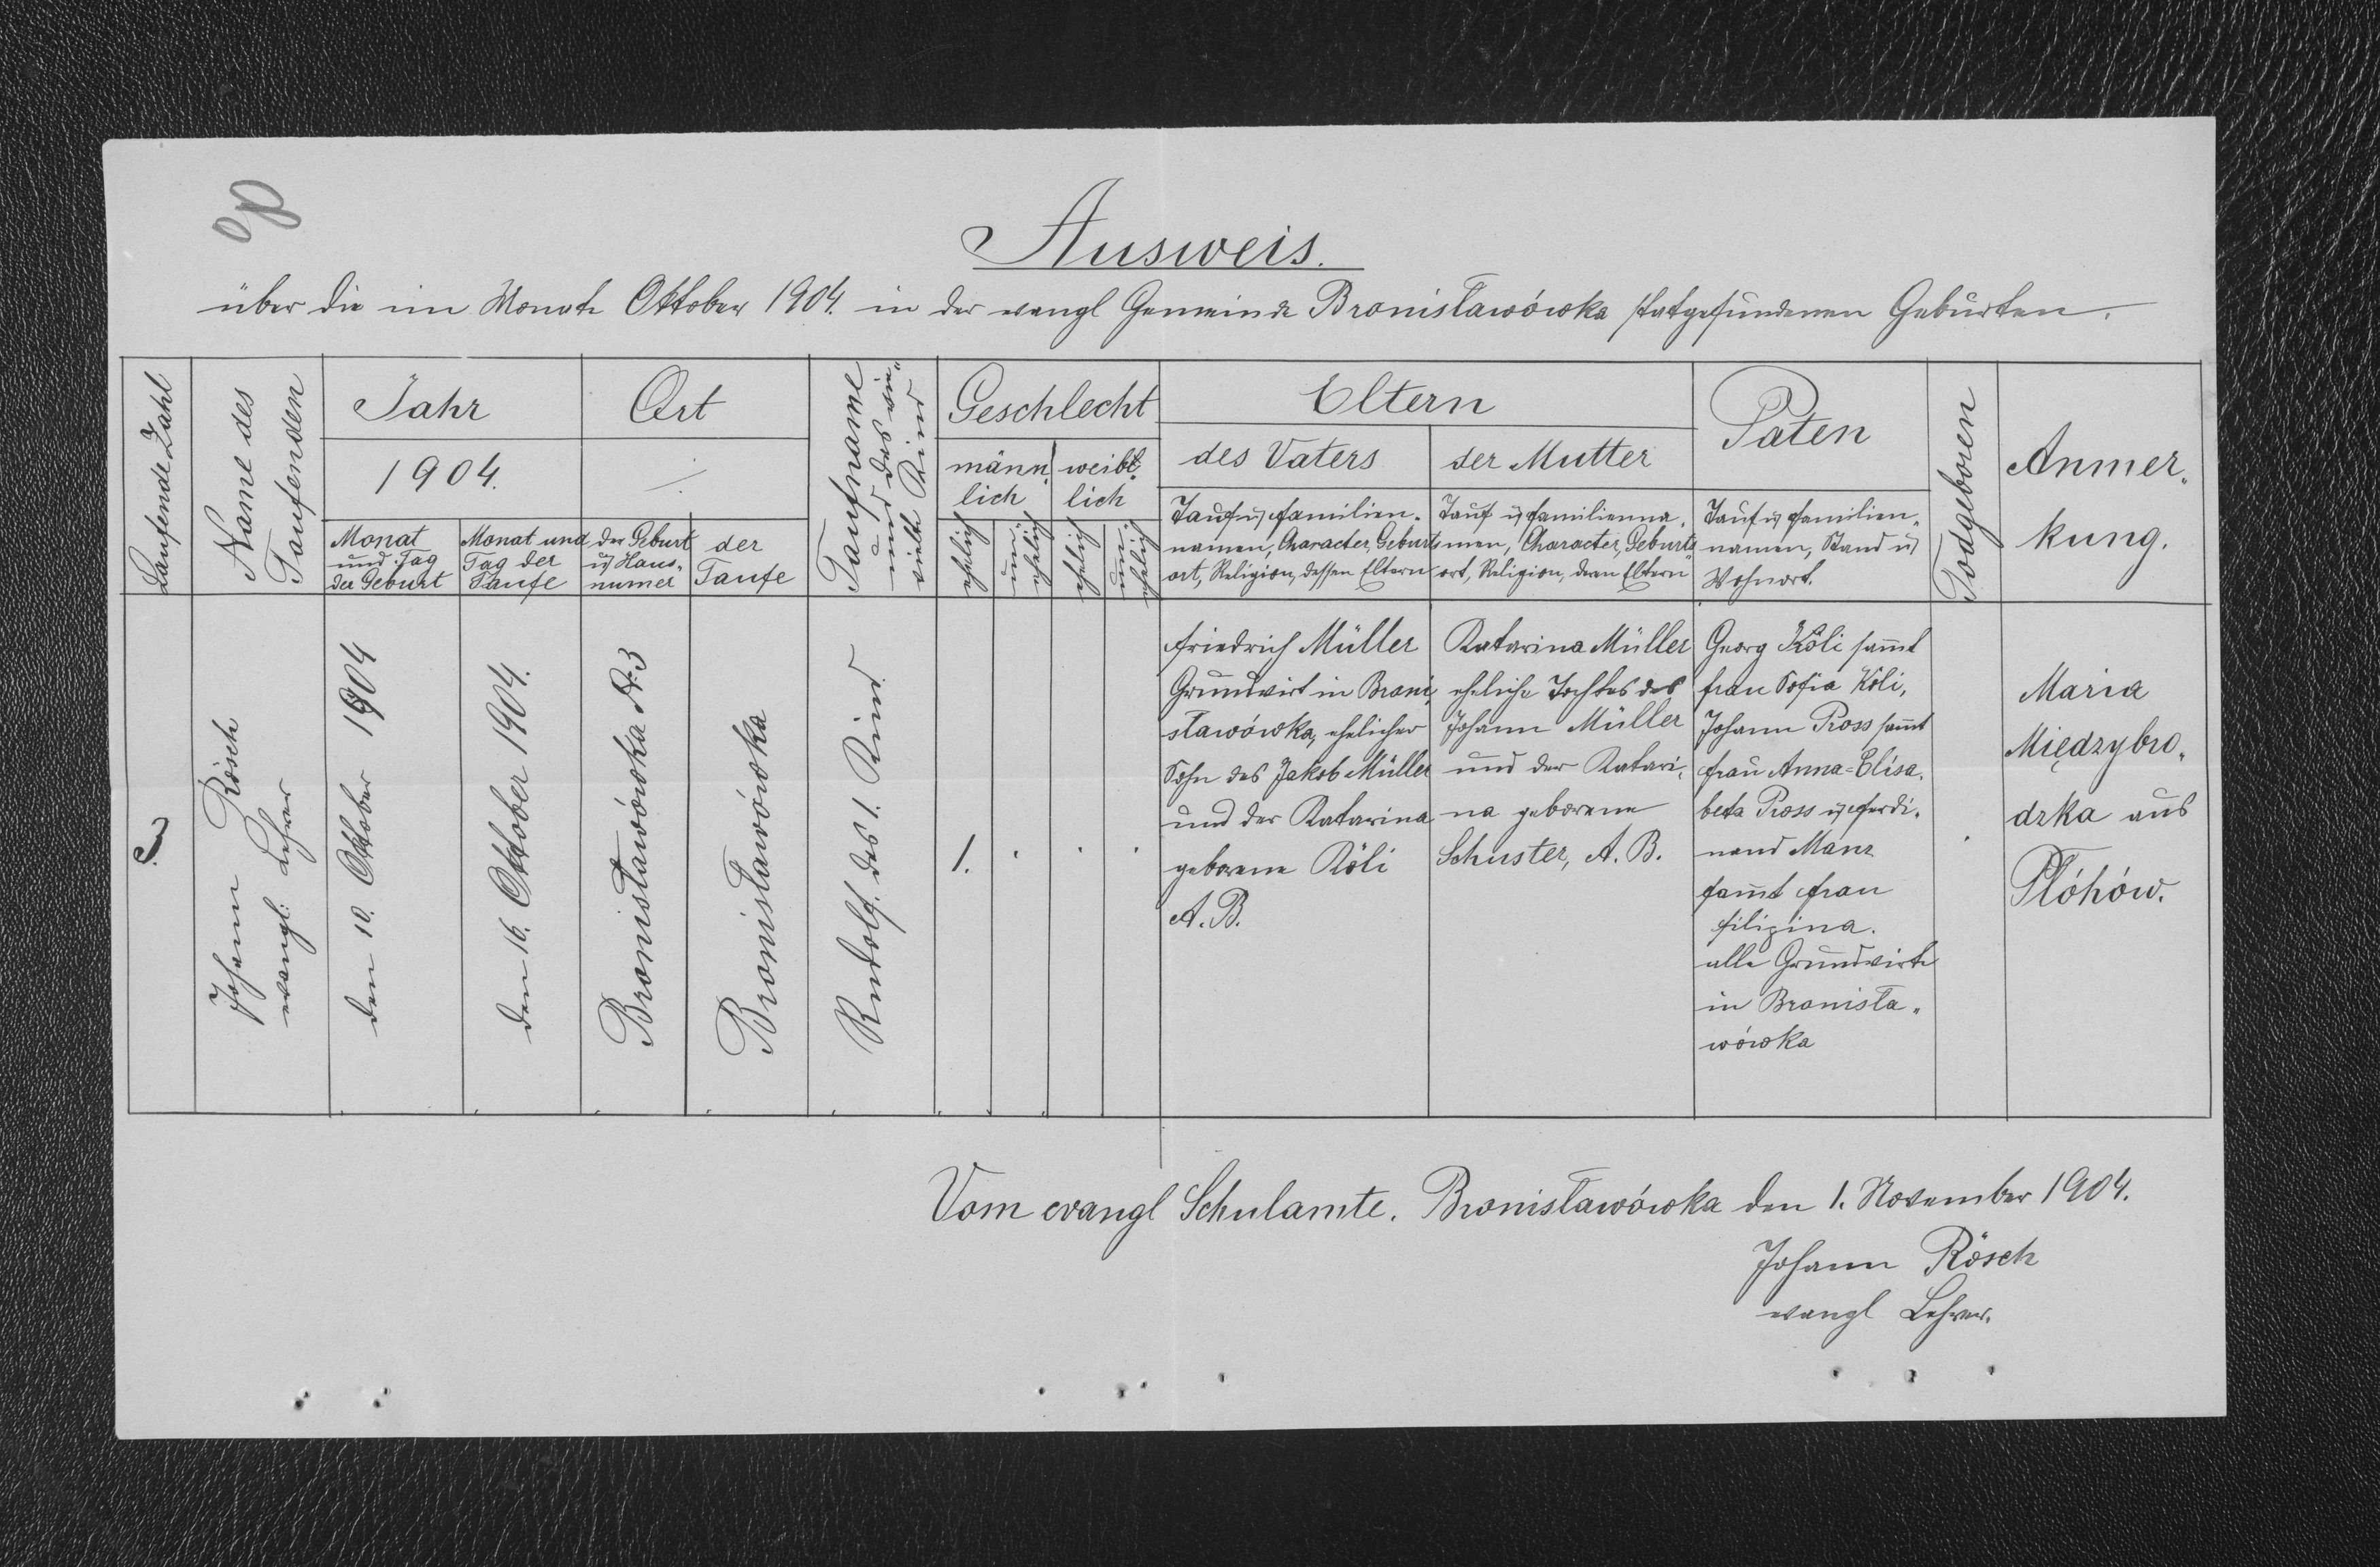 Ausweis.
über die im Monate Oktober 1904. in der evangl Gemeinde Bronisławówka statgefundenen Geburten.
Laufende Zahl
Name des
Taufenden
Jahr
1904.
Monat
und Tag
der Geburt
Monat und
Tag der
Taufe
Ort
der Geburt
u Haus-
numer
der
Taufe
Taufname
und das wie-
vielte Kind
Geschlecht
männ-
lich
weibl-
lich
ehelich
un-
ehelich
ehelich
un-
ehelich
Eltern
des Vaters
Tauf u Familien-
namen, Character, Geburts
ort, Religion, dessen Eltern
der Mutter
Tauf u Familienna-
men, Character, Geburts
ort, Religion, deren Eltern
Paten
Tauf u Familien-
namen, Stand u
Wohnort.
Todgeboren
Anmer-
kung.
3.
Johann Rösch
evangl: Lehrer
den 10. Oktober 1904
den 16. Oktober 1904.
Bronisławówka N. 3
Bronisławówka
Rudolf. des 1. Kind
1.
Friedrich Müller
Grundwirt in Broni-
sławówka, ehelicher
Sohn des Jakob Müller
und der Katarina
geborene Köli
A. B.
Katarina Müller
eheliche Tochter des
Johann Müller
und der Katari-
na geborene
Schuster, A. B.
Georg Köli samt
Frau Sofia Köli,
Johann Pross samt
Frau Anna=Elisa-
beta Pross u Ferdi-
nand Manz
samt Frau
Filipina.
alle Grundwirte
in Bronisła-
wówka
Maria
Międzybro-
dzka aus
Płóhów.
Vom evangl Schulamte. Bronisławówka den 1. November 1904.
Johann Rösch
evangl Lehrer.